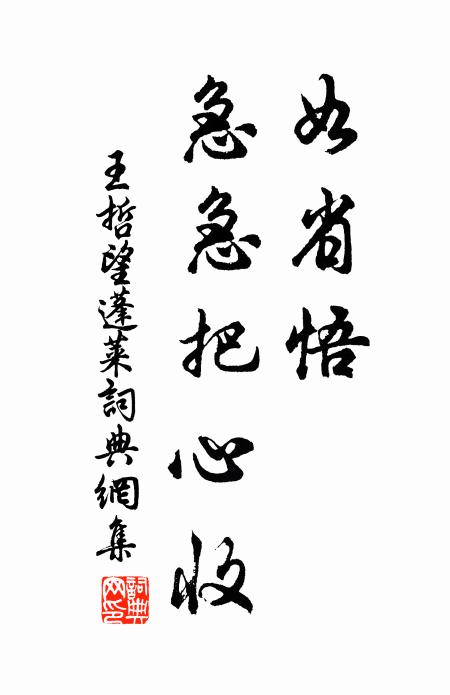 如省悟
急急把心收
王哲望蓬萊詞典網集
詞典網印